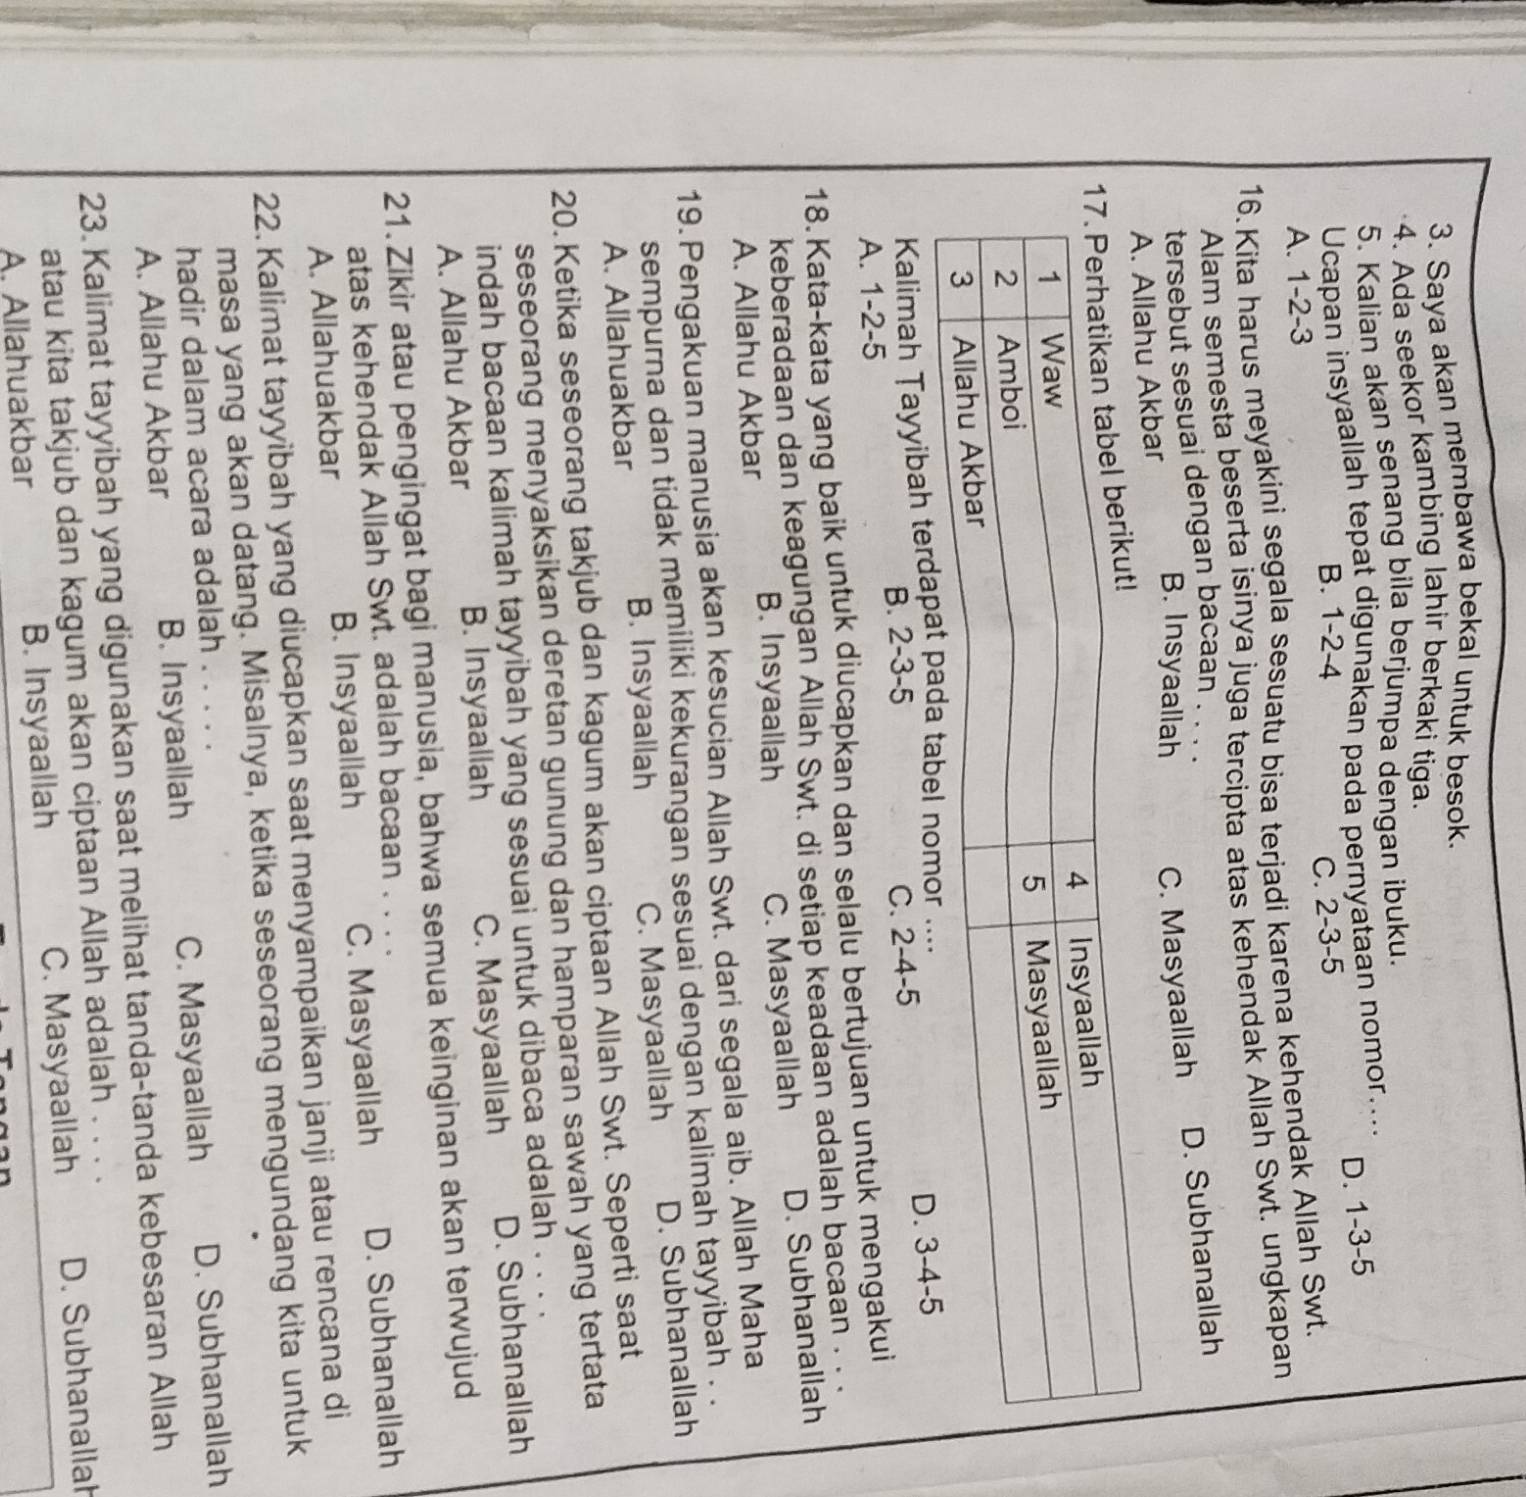 3. Saya akan membawa bekal untuk besok.
4. Ada seekor kambing lahir berkaki tiga.
5. Kalian akan senang bila berjumpa dengan ibuku.
Ucapan insyaallah tepat digunakan pada pernyataan nomor....
A. 1-2-3 B. 1-2-4 C. 2-3-5 D. 1-3-5
16. Kita harus meyakini segala sesuatu bisa terjadi karena kehendak Allah Swt.
Alam semesta beserta isinya juga tercipta atas kehendak Allah Swt. ungkapan
tersebut sesuai dengan bacaan . . . .
A. Allahu Akbar B. Insyaallah C. Masyaallah D. Subhanallah
17. Perhatikan tabel berikut!
1 Waw 4 Insyaallah
2 Amboi 5 Masyaallah
3 Allahu Akbar
Kalimah Tayyibah terdapat pada tabel nomor ....
A. 1-2-5 B. 2-3-5 C. 2-4-5 D. 3-4-5
18. Kata-kata yang baik untuk diucapkan dan selalu bertujuan untuk mengakui
keberadaan dan keagungan Allah Swt. di setiap keadaan adalah bacaan . . .
A. Allahu Akbar B. Insyaallah C. Masyaallah D. Subhanallah
19. Pengakuan manusia akan kesucian Allah Swt. dari segala aib. Allah Maha
sempurna dan tidak memiliki kekurangan sesuai dengan kalimah tayyibah . .
A. Allahuakbar B. Insyaallah C. Masyaallah D. Subhanallah
20. Ketika seseorang takjub dan kagum akan ciptaan Allah Swt. Seperti saat
seseorang menyaksikan deretan gunung dan hamparan sawah yang tertata
indah bacaan kalimah tayyibah yang sesuai untuk dibaca adalah . . . .
A. Allahu Akbar B. Insyaallah C. Masyaallah D. Subhanallah
21. Zikir atau pengingat bagi manusia, bahwa semua keinginan akan terwujud
atas kehendak Allah Swt. adalah bacaan . . . .
A. Allahuakbar B. Insyaallah C. Masyaallah D. Subhanallah
22. Kalimat tayyibah yang diucapkan saat menyampaikan janji atau rencana di
masa yang akan datang. Misalnya, ketika seseorang mengundang kita untuk
hadir dalam acara adalah . . . . .
A. Allahu Akbar B. Insyaallah C. Masyaallah D. Subhanallah
23. Kalimat tayyibah yang digunakan saat melihat tanda-tanda kebesaran Allah
atau kita takjub dan kagum akan ciptaan Allah adalah . . . .
A. Allahuakbar B. Insyaallah C. Masyaallah D. Subhanallah